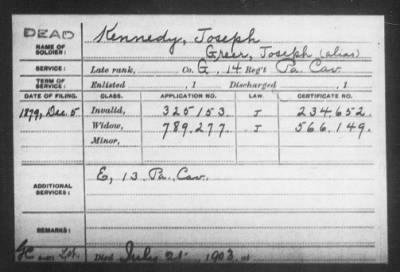 DEAD
NAME OF SOLDIER:
Kennedy, Joseph
Greer, Joseph (alias)
SERVICE:
Late rank, Co. G, 14 Reg't Pa. Cav.
TERM OF SERVICE
Enlisted , 1 Discharged , 1
DATE OF FILING. CLASS. APPLICATION NO. LAW. CERTIFICATE NO.
1879, Dec. 5 Invalid, 325153. J 234.652.
Widow, 789.277. J 566.149.
Minor,
ADDITIONAL SERVICES:
E, 13 Pa. Cav.
REMARKS:
Died July 21, 1903, at